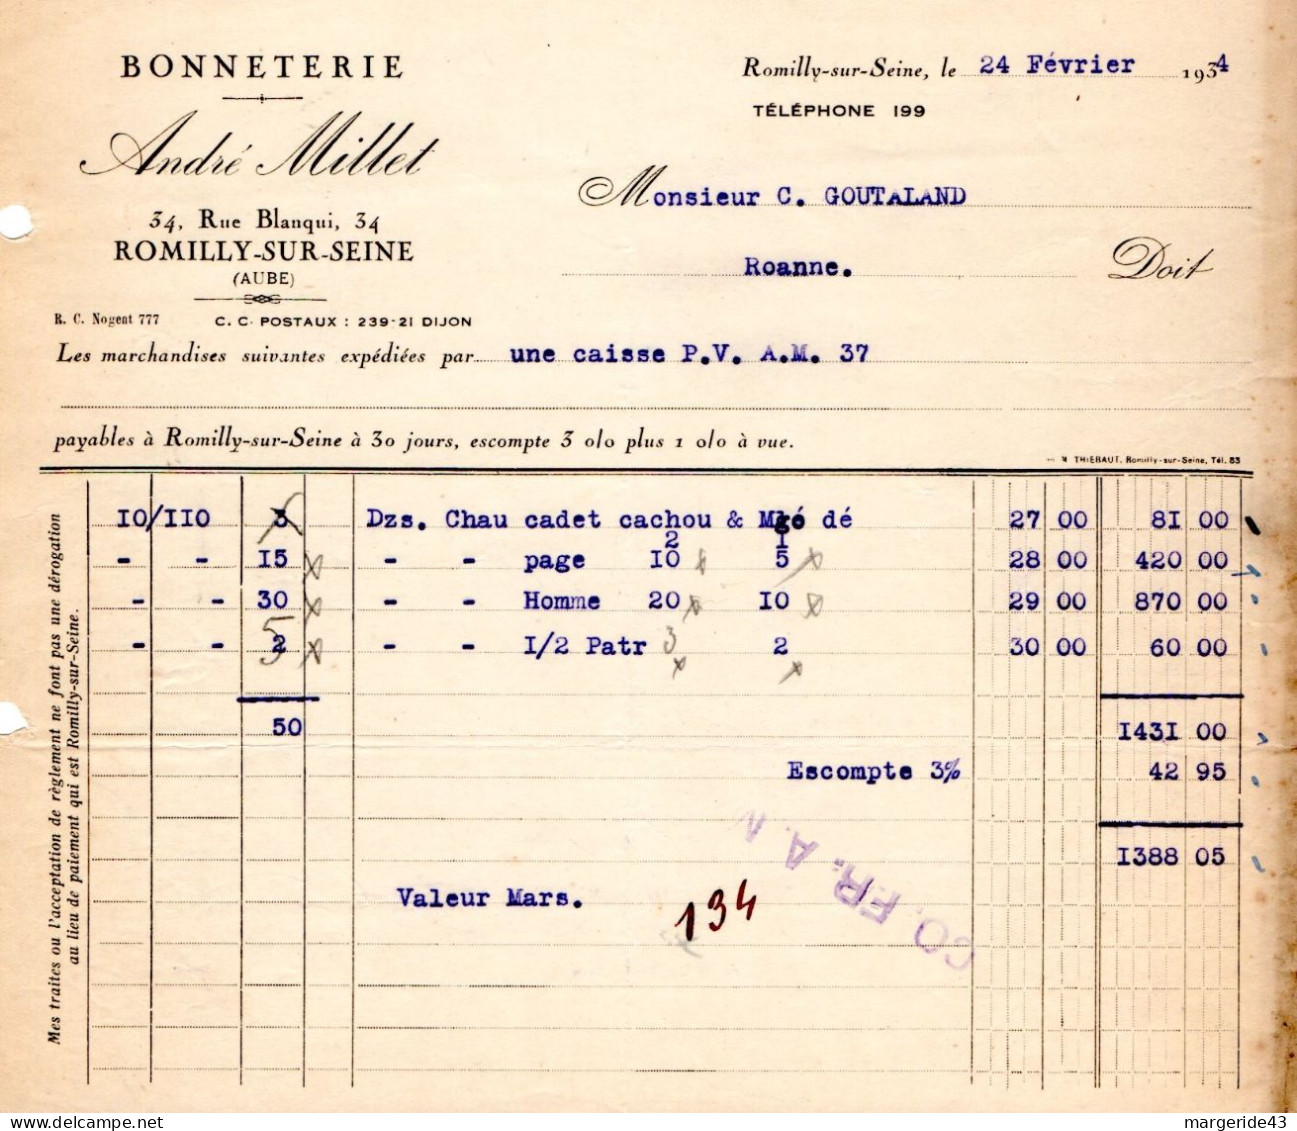 BONNETERIE
André Millet
34, Rue Blanqui, 34
ROMILLY-SUR-SEINE
(AUBE)
R. C. Nogent 777 C. C. POSTAUX : 239-21 DIJON
Romilly-sur-Seine, le 24 Février 1934
TÉLÉPHONE 199
Monsieur C. GOUTALAND
Roanne. Doit
Les marchandises suivantes expédiées par une caisse P.V. A.M. 37
payables à Romilly-sur-Seine à 30 jours, escompte 3 o/o plus 1 o/o à vue.
THIEBAUT, Romilly-sur-Seine, Tél. 83
IO/IIO 3 Dzs. Chau cadet cachou & Mgé dé 27 00 8I 00
2 I
- - I5 - - page IO 5 28 00 420 00
- - 30 - - Homme 20 IO 29 00 870 00
- - 2 5 - - I/2 Patr 3 2 30 00 60 00
50 I43I 00
Escompte 3% 42 95
I388 05
Valeur Mars.
134
CO. FR. A.
Mes traites ou l'acceptation de règlement ne font pas une dérogation
au lieu de paiement qui est Romilly-sur-Seine.
margeride43